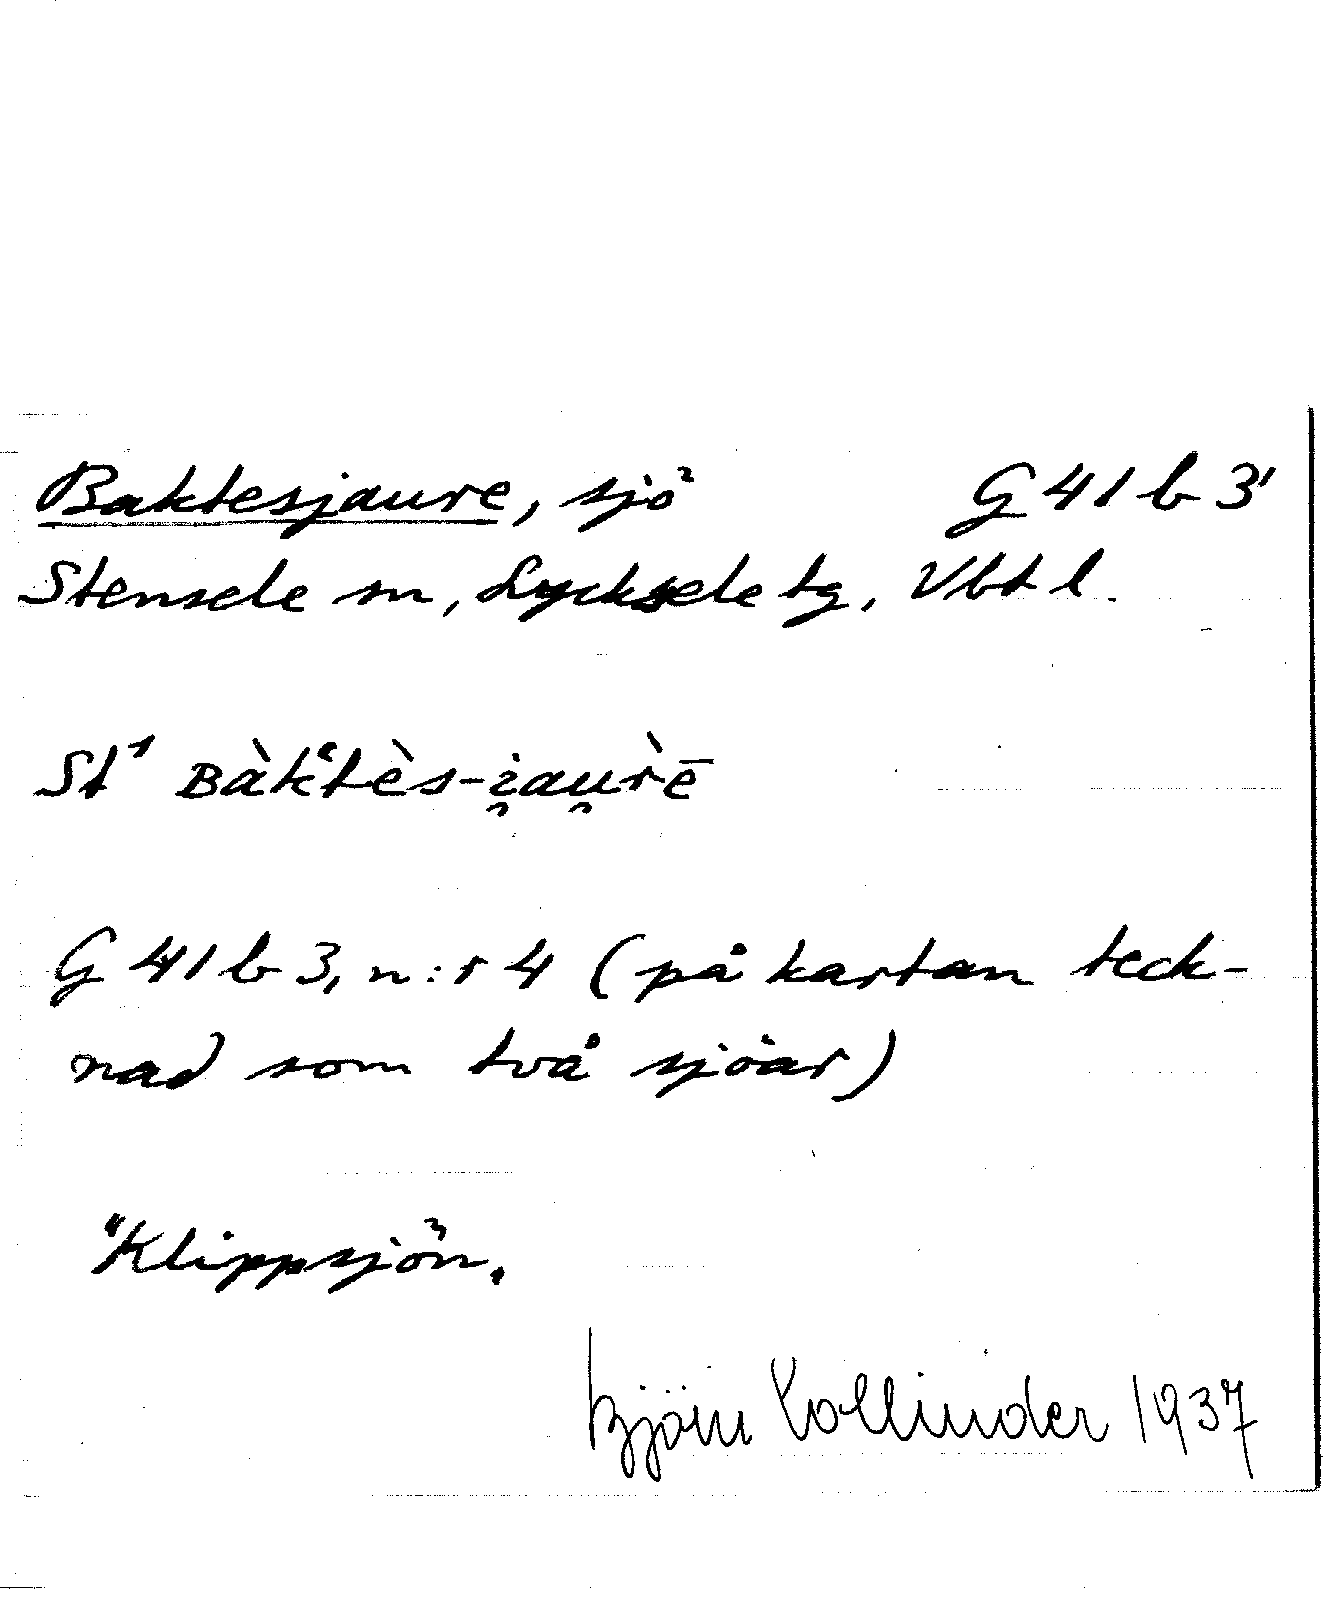 Baktesjaure, sjö G 41 b 3'
Stensele sn, Lycksele tg, Vbt l.
St¹ ʙàk̀ʿtès-i̯au̯r̀ē
G 41 b 3, n:r 4 (på kartan teck-
nad som två sjöar)
"Klippsjön.
Björn Collinder 1937